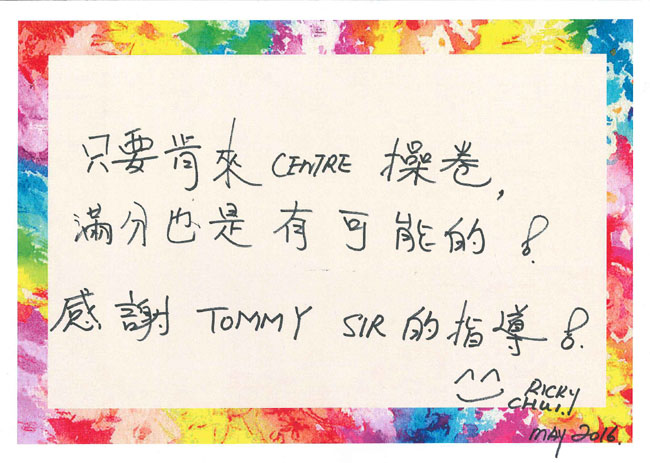 只要肯來 CENTRE 操卷,
滿分也是有可能的!
感謝 TOMMY SIR 的指導!
^^
RICKY
CHUI.
MAY 2016.